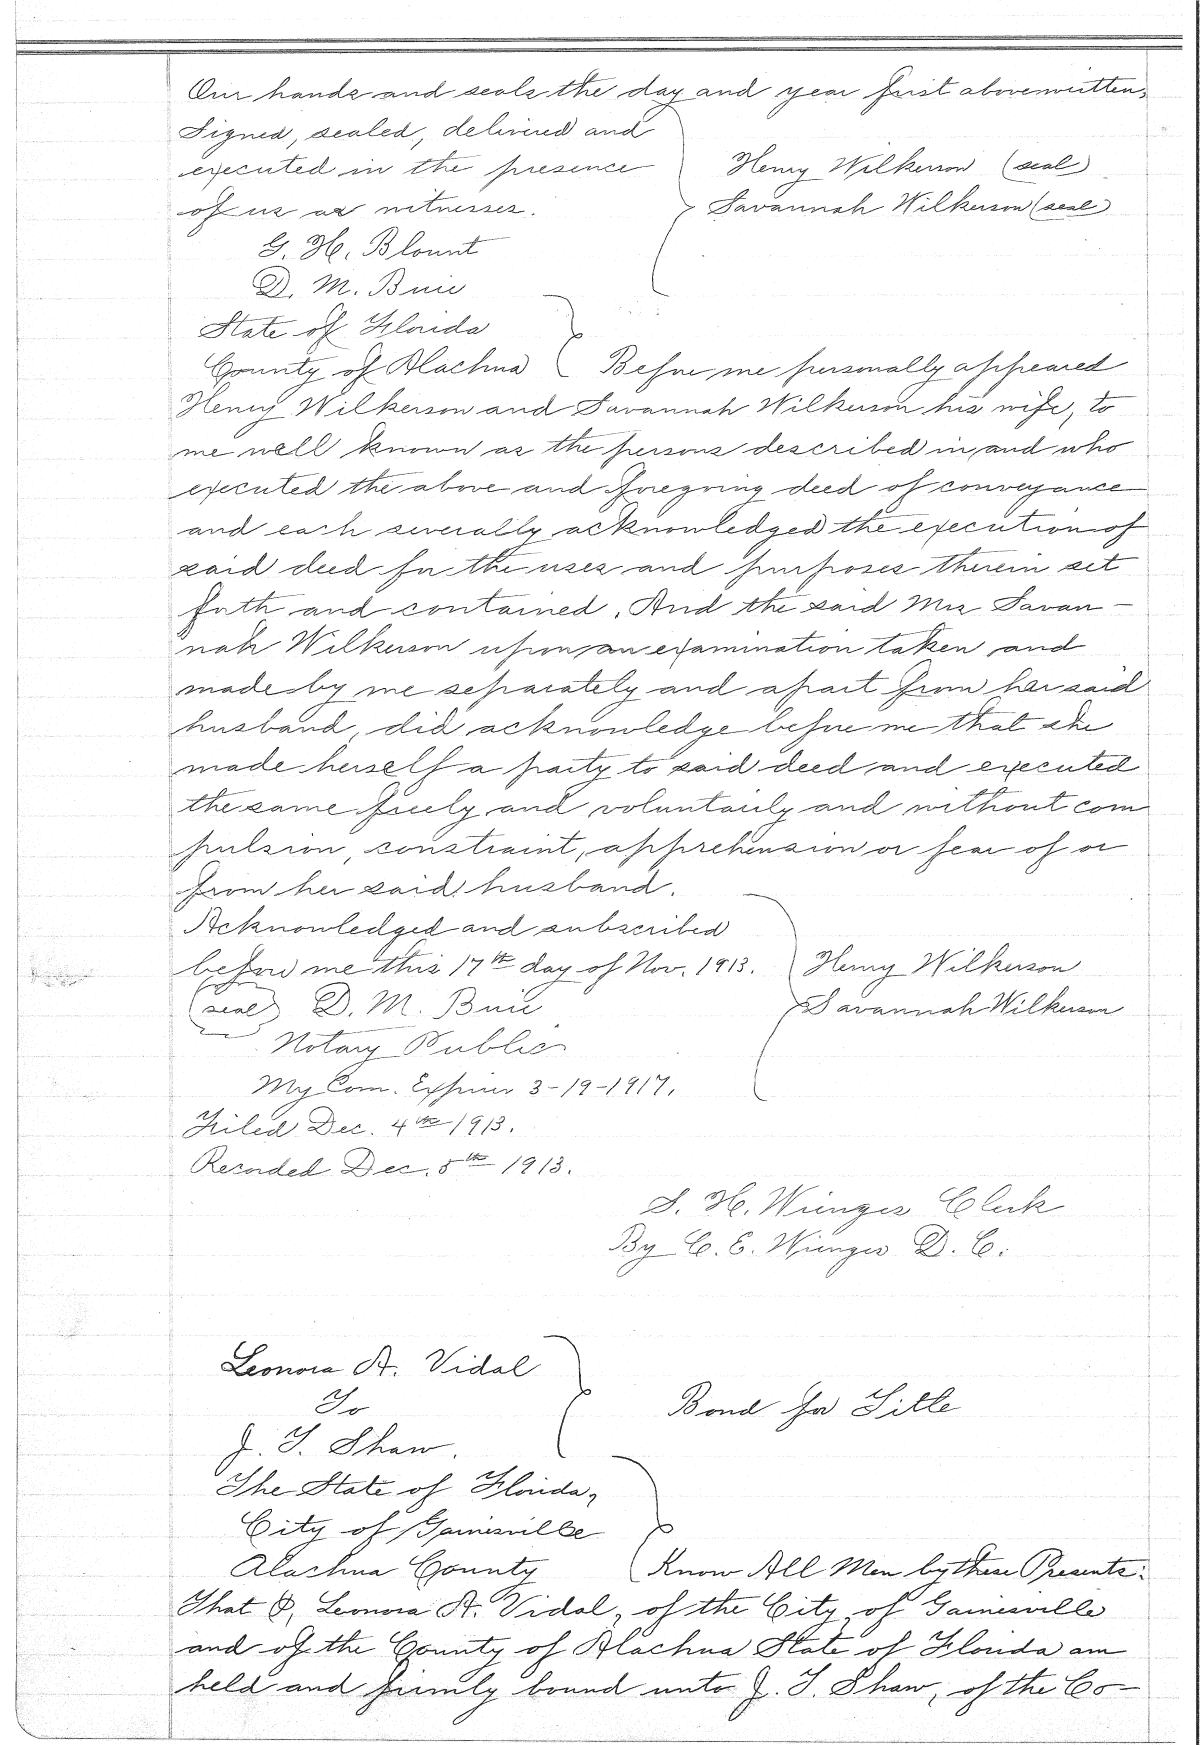 Our hands and seals the day and year first above written,
Signed, sealed, delivered and
executed in the presence
of us as witnesses.
Henry Wilkerson (seal)
Savannah Wilkerson (seal)
G. H. Blount
D. M. Buie
State of Florida
County of Alachua Before me personally appeared
Henry Wilkerson and Savannah Wilkerson his wife, to
me well known as the persons described in and who
executed the above and foregoing deed of conveyance
and each severally acknowledged the execution of
said deed for the uses and purposes therein set
forth and contained. And the said Mrs Savan-
nah Wilkerson upon an examination taken and
made by me separately and apart from her said
husband, did acknowledge before me that she
made herself a party to said deed and executed
the same freely and voluntarily and without com
pulsion, constraint, apprehension or fear of or
from her said husband.
Acknowledged and subscribed
before me this 17th day of Nov. 1913.
Henry Wilkerson
Savannah Wilkerson
(seal) D. M. Buie
Notary Public
My Com. Expires 3-19-1917.
Filed Dec. 4th 1913.
Recorded Dec. 5th 1913.
S. H. Wienges Clerk
By C. E. Wienges D. C.
Leonora A. Vidal
To
J. T. Shaw.
Bond for Title
The State of Florida,
City of Gainesville
Alachua County Know All Men by these Presents:
That I, Leonora A. Vidal, of the City of Gainesville
and of the County of Alachua State of Florida am
held and firmly bound unto J. T. Shaw, of the Co-